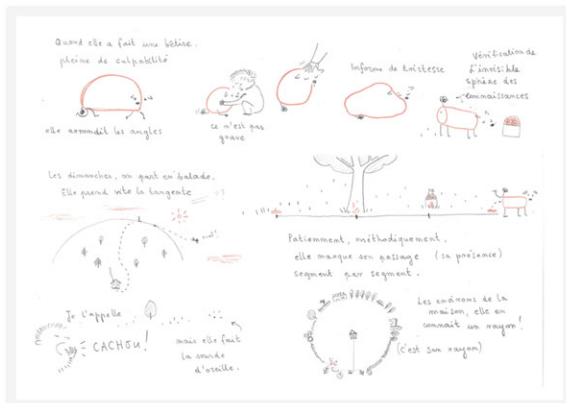 Quand elle a fait une bêtise,
pleine de culpabilité
elle arrondit les angles
ce n'est pas
grave
Informe de tristesse
Vérification de
l'invisible
sphère des
connaissances
Les dimanches, on part en balade.
Elle prend vite la tangente
Patiemment, méthodiquement,
elle marque son passage (sa présence)
segment par segment.
Je l'appelle
CACHOU!
mais elle fait
la sourde
d'oreille.
Les environs de la
maison, elle en
connait un rayon!
(c'est son rayon)